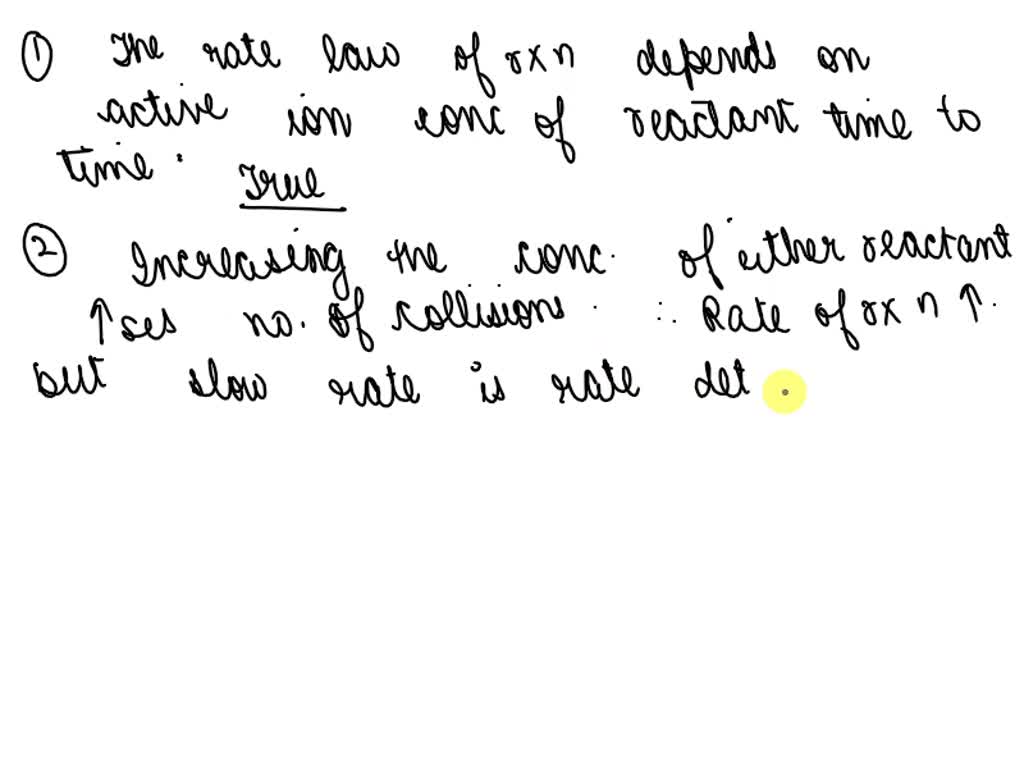 ① The rate law of rxn depends on
active ion conc of reactant time to
time. True
② Increasing the conc. of either reactant
↑ses no. of collisions. ∴ Rate of rxn ↑.
but slow rate is rate det